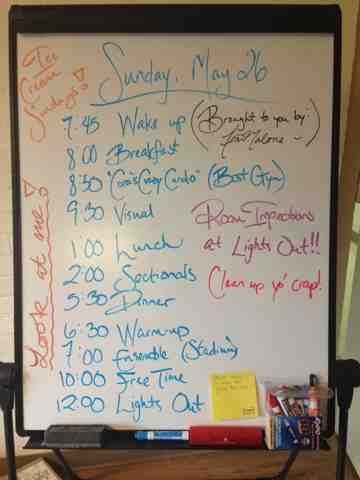 Ice
Cream
Sundays!
Sunday, May 26
7:45 Wake up (Brought to you by:
Malone
8:00 Breakfast
8:30 "Coro's Crazy Cardio" (Best Gym)
9:30 Visual
Room Inspections
at Lights Out!!
Clean up yo' crap!
1:00 Lunch
2:00 Sectionals
5:30 Dinner
6:30 Warm-up
7:00 Ensemble (Stadium)
10:00 Free Time
12:00 Lights Out
Look at me!
EXPO